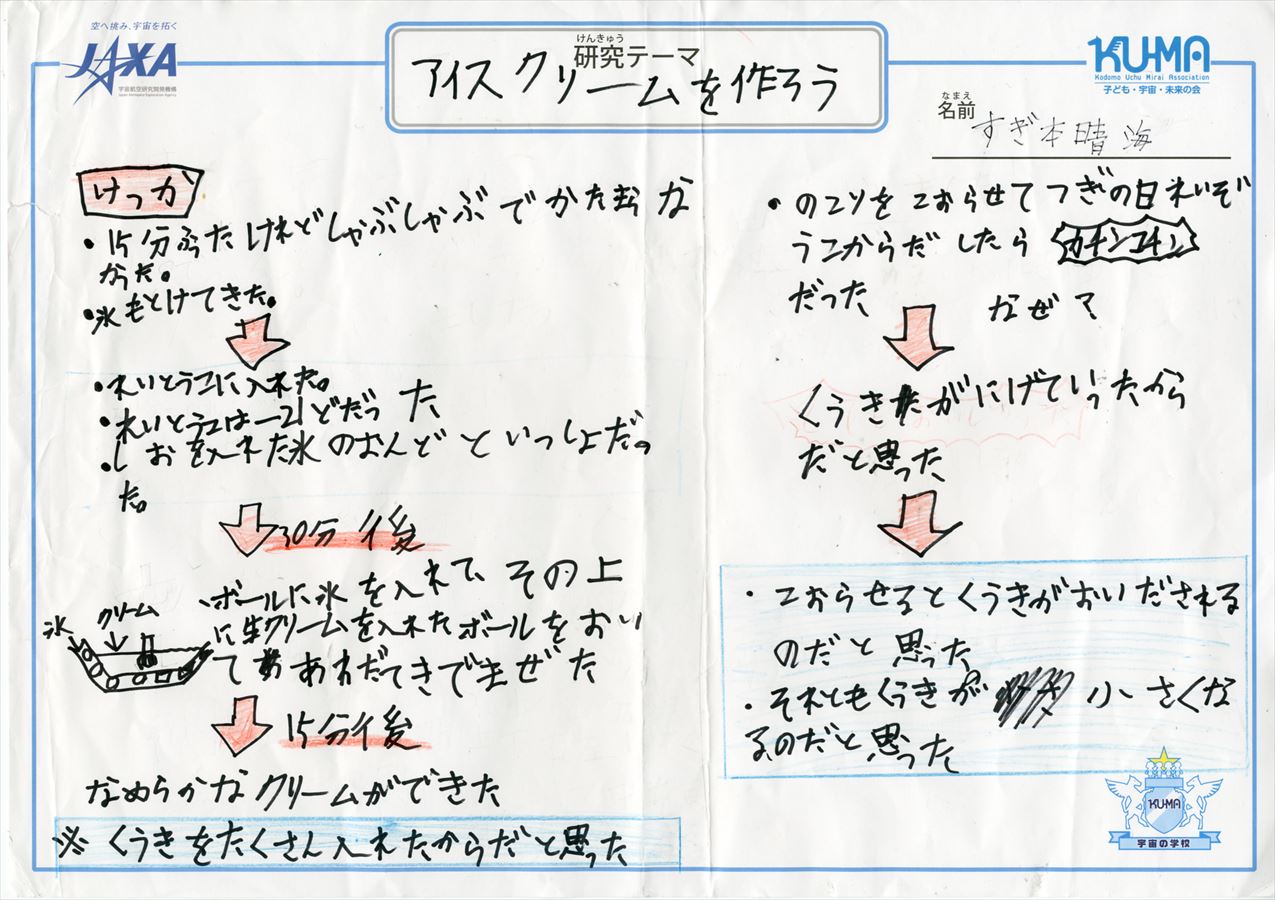 空へ挑み、宇宙を拓く
JAXA
宇宙航空研究開発機構
Japan Aerospace Exploration Agency
けんきゅう
研究テーマ
アイスクリームを作ろう
KU-MA
Kodomo Uchu Mirai Association
子ども・宇宙・未来の会
なまえ
名前
すぎ本晴海
けっか
・15分ふったけれどしゃぶしゃぶでかたまらな
かった。
・氷もとけてきた。
・れいとうこに入れた。
・れいとうこは－21どだった
・しおを入れた氷のおんどといっしょだっ
た。
30分後
氷
クリーム
・ボールに氷を入れて、その上
に生クリームを入れたボールをおい
てあわだてきでまぜた
15分後
なめらかなクリームができた
※くうきをたくさん入れたからだと思った
・のこりをこおらせてつぎの日れいぞ
うこからだしたらカチンコチン
だった
なぜ？
くうきがにげていったから
だと思った
・こおらせるとくうきがおいだされる
のだと思った
・それともくうきが小さくな
るのだと思った
KU-MA
宇宙の学校